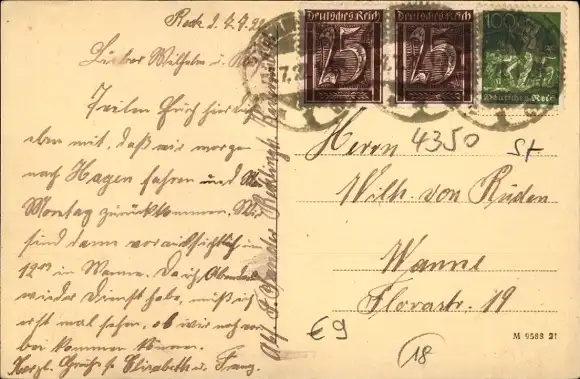 Lieber Wilhelm u.
Teilen Euch hierdurch
eben mit, daß wir morgen
nach Hagen fahren und
Montag zurückkommen. Wir
sind dann voraussichtlich im
19⁰⁹ in Wanne. Da ich Abends
wieder Dienst habe, muß ich
erst mal sehen, ob wir noch
bei kommen können.
Herzl. Grüße Elisabeth u. Franz.
Deutsches Reich
25
Deutsches Reich
25
100
Deutsches Reich
Herrn
4350
St
Wilh. von Rüden
Wanne
Florastr. 19
€9
18
M 9588 21